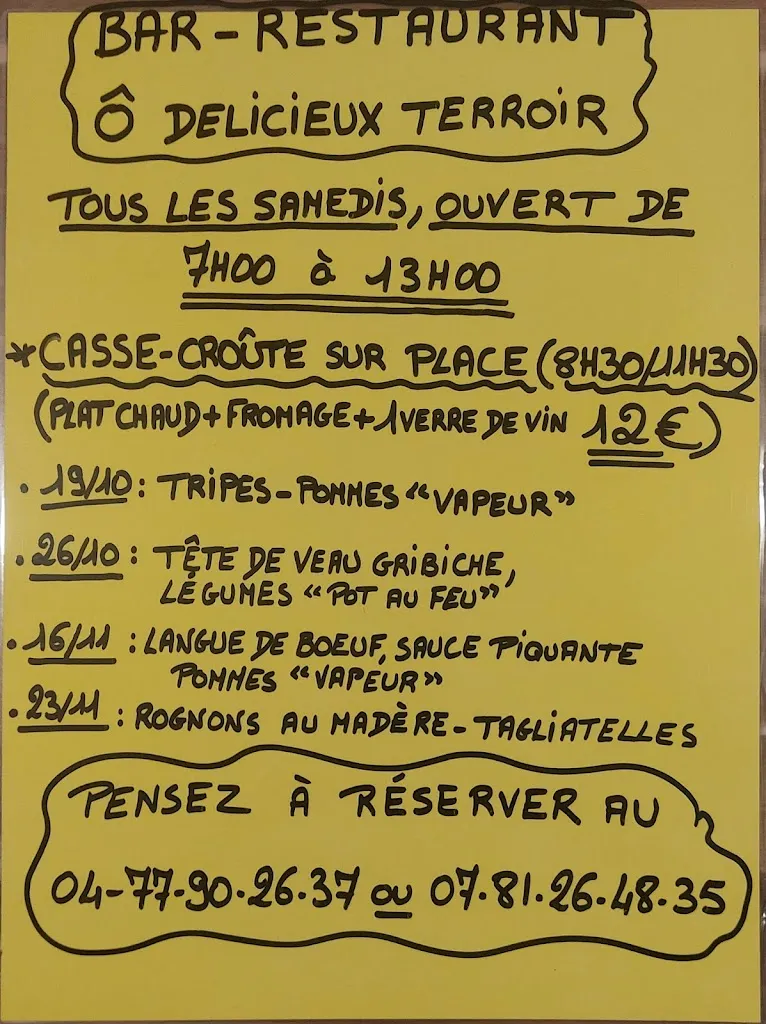 BAR-RESTAURANT
Ô DELICIEUX TERROIR
TOUS LES SAMEDIS, OUVERT DE
7H00 à 13H00
*CASSE-CROÛTE SUR PLACE (8H30/11H30)
(PLAT CHAUD+FROMAGE+1VERRE DE VIN 12€)
. 19/10: TRIPES-POMMES "VAPEUR"
. 26/10: TÊTE DE VEAU GRIBICHE,
LÉGUMES "POT AU FEU"
. 16/11: LANGUE DE BOEUF, SAUCE PIQUANTE
POMMES "VAPEUR"
. 23/11: ROGNONS AU MADÈRE-TAGLIATELLES
PENSEZ À RÉSERVER AU
04-77-90.26.37 ou 07.81.26.48.35